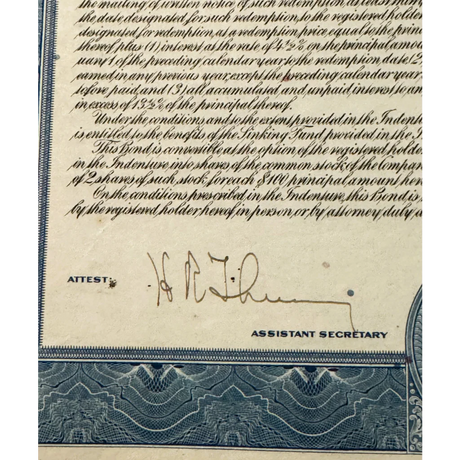 the mailing of written notice of such redemption at least thirty
the date designated for such redemption to the registered holder
designated for redemption, at a redemption price equal to the princ
thereof plus (1) interest at the rate of 4½% on the principal amoun
uary 1 of the preceding calendar year to the redemption date (2
earned in any previous year except the preceding calendar year
tofore paid, and (3) all accumulated and unpaid interest to an
in excess of 13½% of the principal thereof.
Under the conditions, and to the extent provided in the Indentur
is entitled to the benefits of the Sinking Fund provided in the In
This Bond is convertible at the option of the registered holder
in the Indenture into shares of the common stock of the Company
of 2 shares of such stock for each $100 principal amount here
On the conditions prescribed in the Indenture, this Bond is
by the registered holder hereof, in person, or by attorney duly a
ATTEST:
H R
ASSISTANT SECRETARY